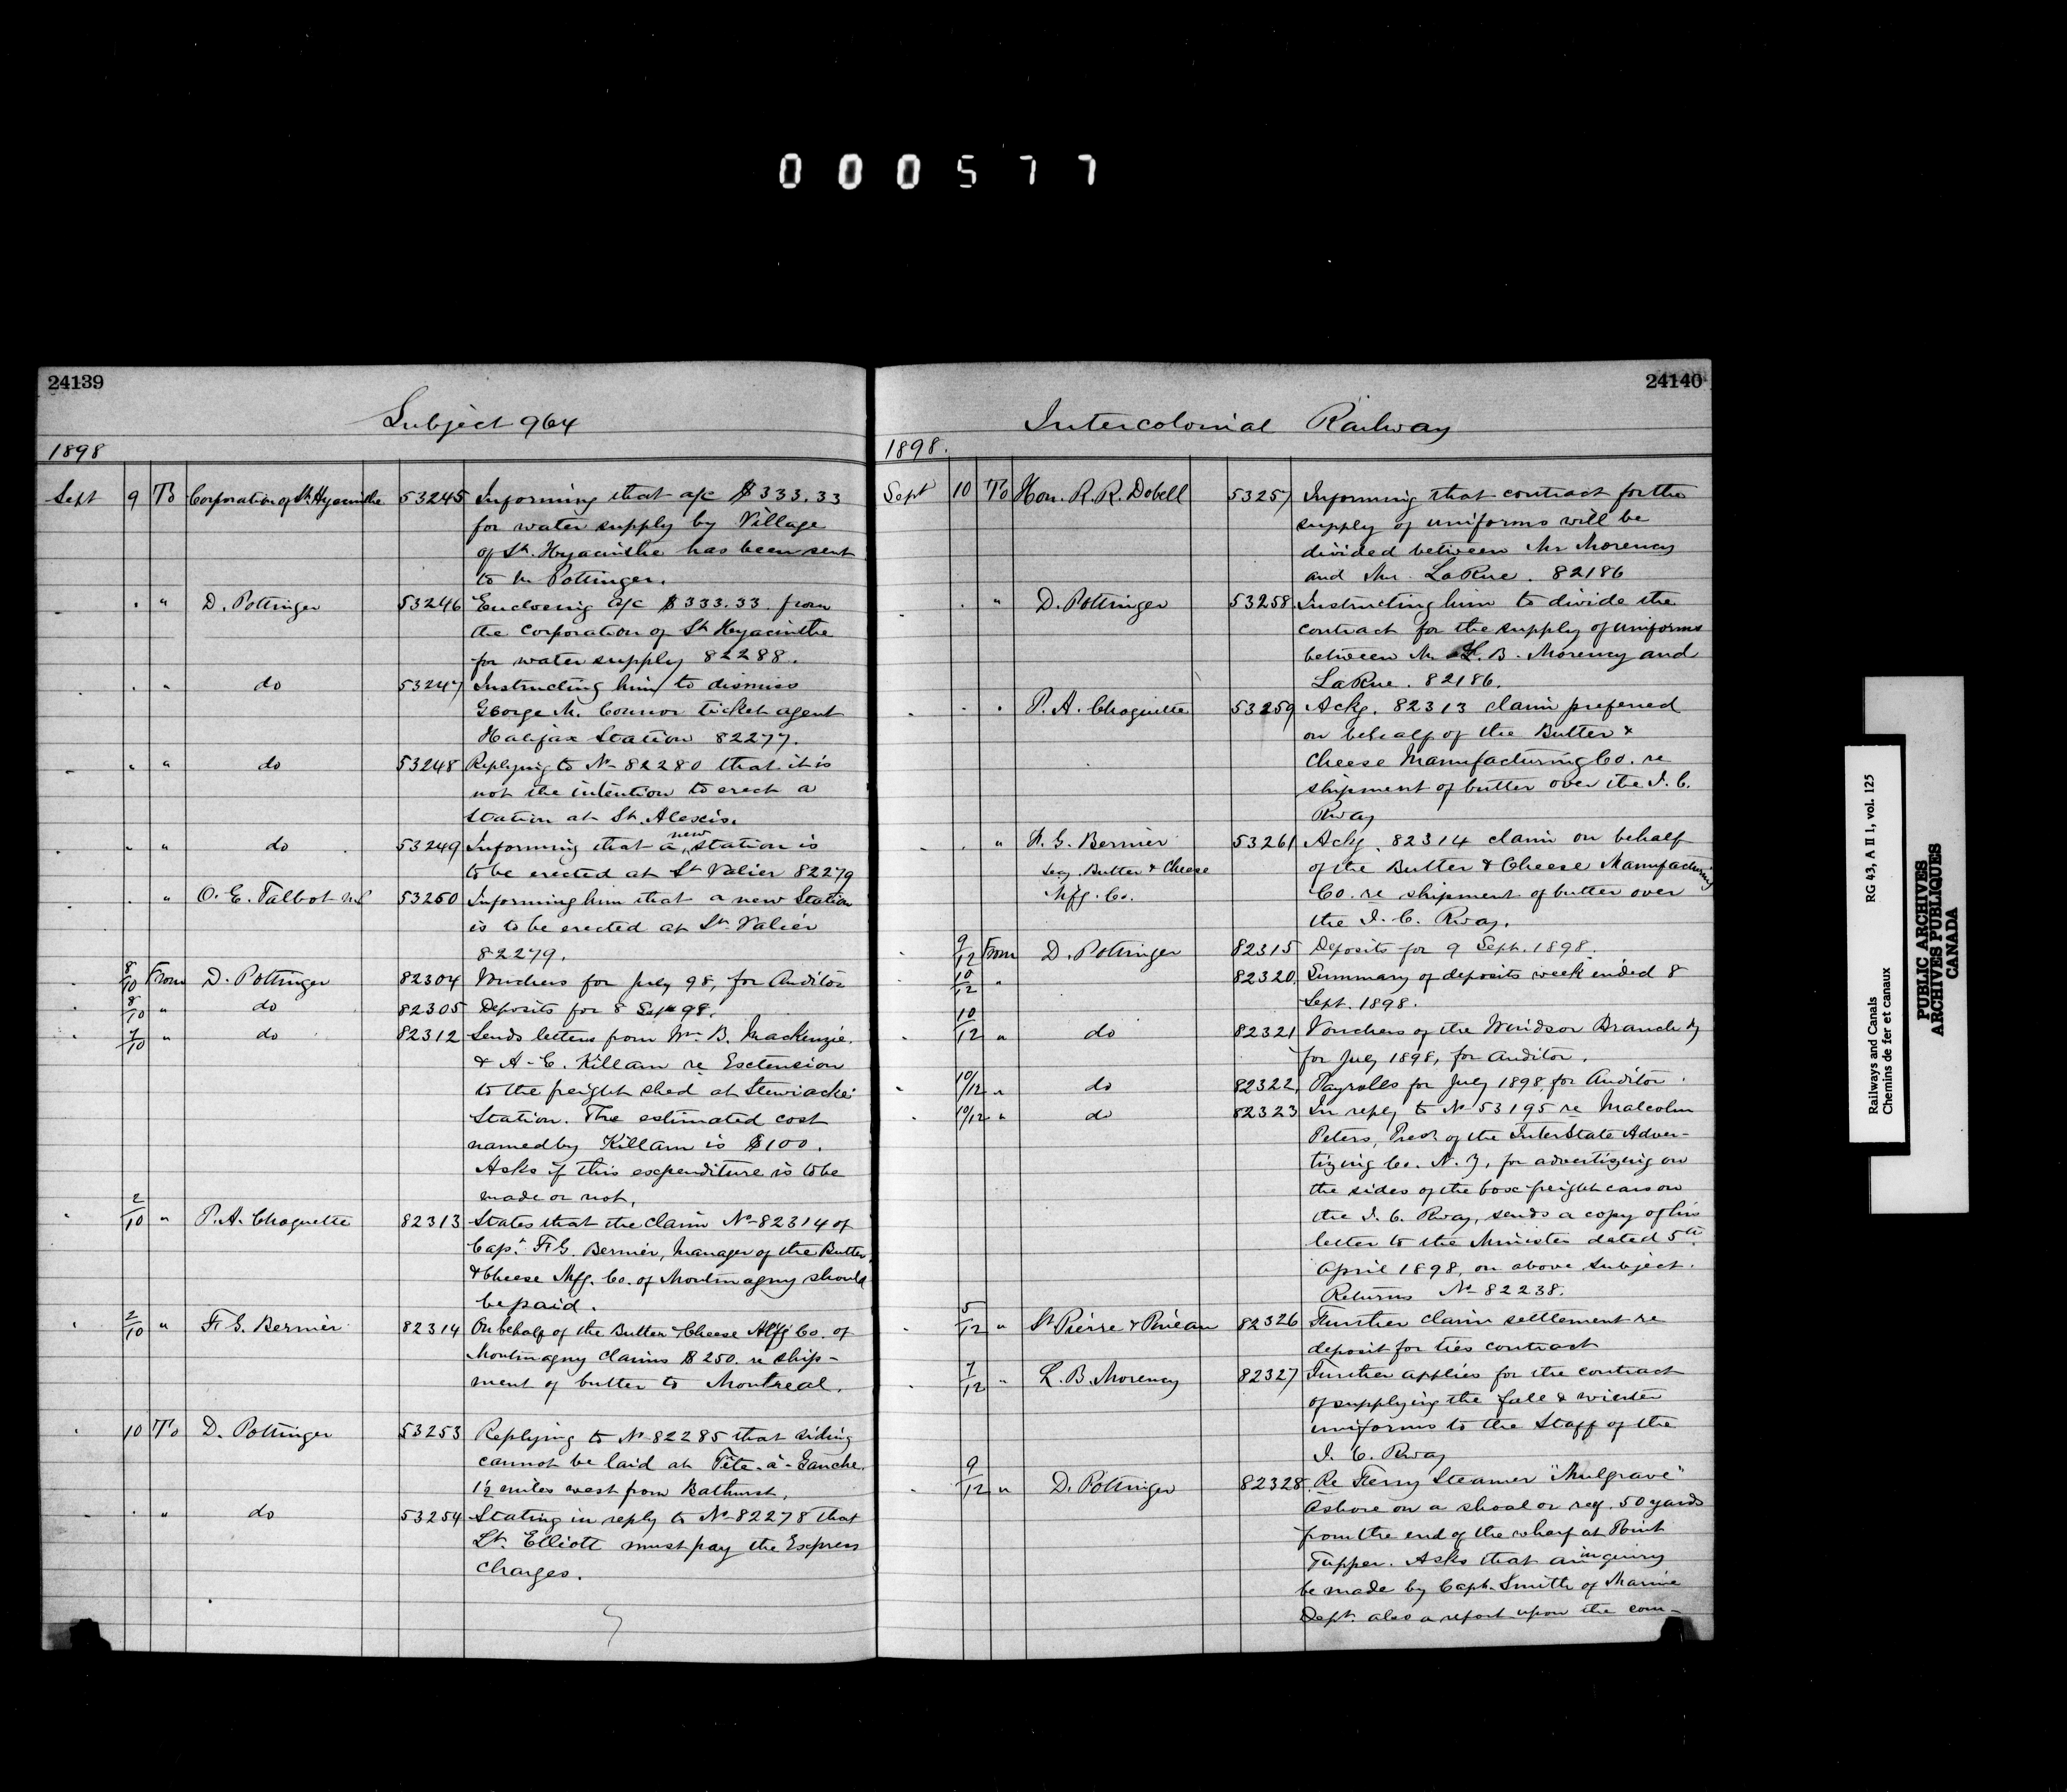 000577
24139
Subject 964
1898
Sept 9 To Corporation of St. Hyacinthe 53245 Informing that a/c $333.33
for water supply by Village
of St. Hyacinthe has been sent
to Mr Pottinger.
" " D. Pottinger 53246 Enclosing a/c $333.33 from
the corporation of St Hyacinthe
for water supply 82288.
" " do 53247 Instructing him to dismiss
George M. Connor ticket agent
Halifax Station 82277.
" " do 53248 Replying to No 82280 that it is
not the intention to erect a
station at St. Alexis.
" " do 53249 Informing that a new station is
to be erected at St Valier 82279
" " O. E. Talbot M.P. 53250 Informing him that a new Station
is to be erected at St. Valier
82279.
8/10 From D. Pottinger 82304 Vouchers for July 98, for Auditor
8/10 " do 82305 Deposits for 8 Sept 98.
7/10 " do 82312 Sends letters from Wm B. MacKenzie.
& A. E. Killam re Extension
to the freight shed at Stewiacke
Station. The estimated cost
named by Killam is $100.
Asks if this expenditure is to be
made or not.
2/10 " P. A. Choquette 82313 States that the claim No 82314 of
Capt. F. G. Bernier, Manager of the Butter
& Cheese Mfg. Co. of Montmagny should
be paid.
2/10 " F. G. Bernier 82314 On behalf of the Butter & Cheese Mfg Co. of
Montmagny claims $250. re ship-
ment of butter to Montreal.
10 To D. Pottinger 53253 Replying to No 82285 that siding
cannot be laid at Tête-à-Gauche.
1½ miles west from Bathurst.
" " do 53254 Stating in reply to No 82278 that
Lt. Elliott must pay the Express
Charges.
24140
Intercolonial Railway
1898.
Sept 10 To Hon. R. R. Dobell 53257 Informing that contract for the
supply of uniforms will be
divided between Mr Morency
and Mr. LaRue. 82186
" " D. Pottinger 53258 Instructing him to divide the
contract for the supply of uniforms
between Mr L. B. Morency and
LaRue. 82186.
" " P. A. Choquette 53259 Ackg. 82313 claim preferred
on behalf of the Butter &
Cheese Manufacturing Co. re
shipment of butter over the I. C.
Rway
" " F. G. Bernier 53261 Ackg. 82314 claim on behalf
Secy. Butter & Cheese of the Butter & Cheese Manufacturing
Mfg. Co. Co. re shipment of butter over
the I. C. Rway.
9/12 From D. Pottinger 82315 Deposits for 9 Sept. 1898.
10/12 " 82320. Summary of deposits week ended 8
Sept. 1898.
10/12 " do 82321 Vouchers of the Windsor Branch Ry
for July 1898, for Auditor.
10/12 " do 82322. Payrolls for July 1898, for Auditor.
10/12 " do 82323 In reply to No 53195 re Malcolm
Peters, Prest. of the InterState Adver-
tizing Co. N. Y., for advertizing on
the sides of the box freight cars on
the I. C. Rway, sends a copy of his
letter to the Minister dated 5th
April 1898, on above subject.
Returns No 82238.
5/12 " St Pierre & Pineau 82326 Further claim settlement re
deposit for ties contract
7/12 " L. B. Morency 82327 Further applies for the contract
of supplying the fall & winter
uniforms to the Staff of the
I. C. Rway
9/12 " D. Pottinger 82328 Re Ferry Steamer "Mulgrave"
ashore on a shoal or reef. 50 yards
from the end of the wharf at Point
Tupper. Asks that an inquiry
be made by Capt. Smith of Marine
Dept. also a report upon the com-
Railways and Canals RG 43, A II 1, vol. 125
Chemins de fer et canaux
PUBLIC ARCHIVES
ARCHIVES PUBLIQUES
CANADA